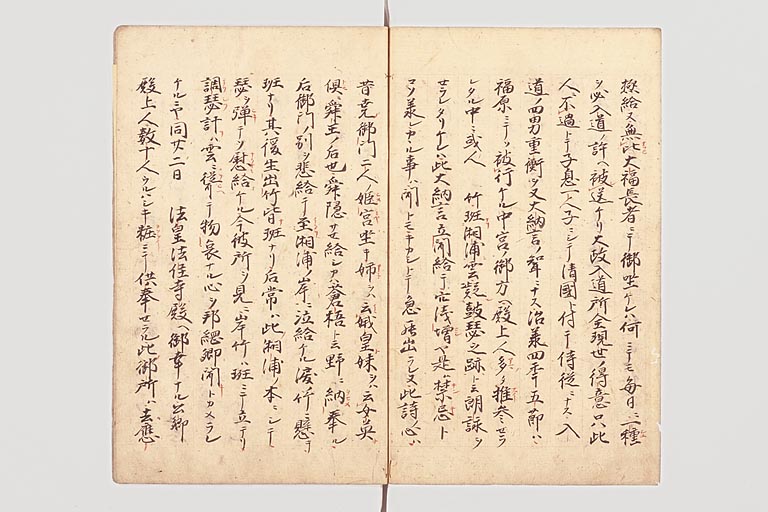 挍給又無比大福長者ニテ御坐ケレハ何ニテモ毎日ニ一種
ヲ必入道ノ許ヘ被送ケリ大政入道所全現世ノ得意只此
人ニ不過トテ子息一人子ニシテ清國ト付テ侍従ニナス入
道ノ四男重衡ヲ又大納言ノ聟ニナス治羕四年五節ハ
福原ニテソ被行ケル中宮ノ御方ヘ殿上人多ク推参セラ
レタル中ニ或人 竹斑湘浦雲凝鼓瑟之跡ト云朗詠ヲ
セラレタリケレハ此大納言立聞給テ穴浅増ヤ是ハ禁忌ト
コソ羕レカヽル事ハ聞トモキカレトテ急キ罷出ラレ又此詩ノ心ハ
昔尭御門ニ二人ノ姫宮坐キ姉ヲハ云娥皇妹ヲハ云女英
倶ニ舜王ノ后也舜隠サセ給シカハ蒼梧ト云野ニ納奉ル
后御門ノ別ヲ悲給テ至湘浦ノ岸ニ泣給ケル涙竹ニ懸テ
班ナリ其後生出竹皆班ナリ后常ハ此湘浦ノ本ニシテ
瑟ヲ弾テソ慰給ケル今彼所ヲ見ニ岸竹ハ班ニテ立テリ
調瑟計ハ雲ニ従ケテ物哀ナル心ヲ邦綱卿聞トカメラレ
ケルニヤ同廿二日 法皇法住寺殿ヘ御幸ナル公卿
殿上人数十人ウルハシキ粧ニテ供奉セラル此御所ハ去應